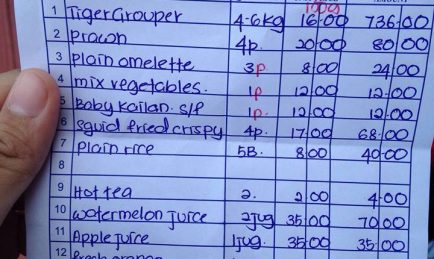 1 Tiger Grouper 4.6kg 16.00 736.00
2 prawn 4p. 20.00 80.00
3 plain omelette 3p 8.00 24.00
4 mix vegetables. 1p 12.00 12.00
5 Baby Kailan. s/p 1p. 12.00 12.00
6 squid fried crispy 4p. 17.00 68.00
7 plain rice 5B. 8.00 40.00
8
9 Hot tea 2. 2.00 4.00
10 watermelon Juice 2jug 35.00 70.00
11 Apple Juice 1jug. 35.00 35.00
12